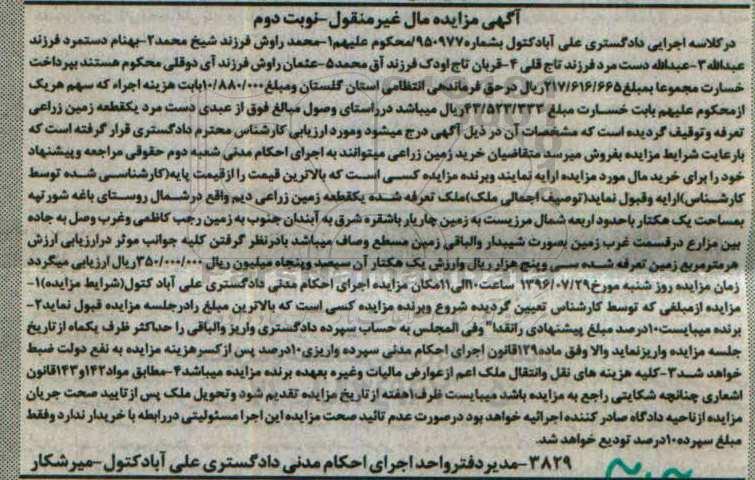 آگهی مزایده مال غیرمنقول-نوبت دوم
درکلاسه اجرایی دادگستری علی آبادکتول بشماره۹۵۰۹۷۷/محکوم علیهم۱-محمد راوش فرزند شیخ محمد۲-بهنام دستمرد فرزند
عبدالله۳-عبدالله دست مرد فرزند تاج قلی ۴-قربان تاج اودک فرزند آق محمد۵-عثمان راوش فرزند آی دوقلی محکوم هستند بپرداخت
خسارت مجموعا بمبلغ۲۱۷/۶۱۶/۶۶۵ریال درحق فرماندهی انتظامی استان گلستان ومبلغ۱۰/۸۸۰/۰۰۰بابت هزینه اجراء که سهم هریک
ازمحکوم علیهم بابت خسارت مبلغ ۴۳/۵۲۳/۳۳۳ریال میباشد درراستای وصول مبالغ فوق از عبدی دست مرد یکقطعه زمین زراعی
تعرفه وتوقیف گردیده است که مشخصات آن در ذیل آگهی درج میشود ومورد ارزیابی کارشناس محترم دادگستری قرار گرفته است که
بارعایت شرایط مزایده بفروش میرسد متقاضیان خرید زمین زراعی میتوانند به اجرای احکام مدنی شعبه دوم حقوقی مراجعه وپیشنهاد
خود را برای خرید مال مورد مزایده ارایه نمایند وبرنده مزایده کسی است که بالاترین قیمت را ازقیمت پایه(کارشناسی شده توسط
کارشناس)ارایه وقبول نماید(توصیف اجمالی ملک)ملک تعرفه شده یکقطعه زمین زراعی دیم واقع درشمال روستای باغه شورتپه
بمساحت یک هکتار باحدود اربعه شمال مرزیست به زمین چاریار باشقره شرق به آبندان جنوب به زمین رجب کاظمی وغرب وصل به جاده
بین مزارع درقسمت غرب زمین بصورت شیبدار والباقی زمین مسطح وصاف میباشد بادرنظر گرفتن کلیه جوانب موثر درارزیابی ارزش
هرمترمربع زمین تعرفه شده سی وپنج هزار ریال وارزش یک هکتار آن سیصد وپنجاه میلیون ریال ۳۵۰/۰۰۰/۰۰۰ریال ارزیابی میگردد
زمان مزایده روز شنبه مورخ۱۳۹۶/۰۷/۲۹ ساعت۱۰الی۱۱مکان مزایده اجرای احکام مدنی دادگستری علی آباد کتول(شرایط مزایده)۱-
مزایده ازمبلغی که توسط کارشناس تعیین گردیده شروع وبرنده مزایده کسی است که بالاترین مبلغ رادرجلسه مزایده قبول نماید۲-
برنده میبایست۱۰درصد مبلغ پیشنهادی رانقدا" وفی المجلس به حساب سپرده دادگستری واریز والباقی را حداکثر ظرف یکماه ازتاریخ
جلسه مزایده واریزنماید والا وفق ماده۱۲۹قانون اجرای احکام مدنی سپرده واریزی۱۰درصد پس ازکسرهزینه مزایده به نفع دولت ضبط
خواهد شد۳-کلیه هزینه های نقل وانتقال ملک اعم ازعوارض مالیات وغیره بعهده برنده مزایده میباشد۴-مطابق مواد۱۴۲و۱۴۳قانون
اشعاری چنانچه شکایتی راجع به مزایده باشد میبایست ظرف۱هفته ازتاریخ مزایده تقدیم شود وتحویل ملک پس ازتایید صحت جریان
مزایده ازناحیه دادگاه صادر کننده اجرائیه خواهد بود درصورت عدم تائید صحت مزایده این اجرا مسئولیتی دررابطه با خریدار ندارد وفقط
مبلغ سپرده۱۰درصد تودیع خواهد شد.
۳۸۲۹-مدیردفترواحداجرای احکام مدنی دادگستری علی آبادکتول-میرشکار